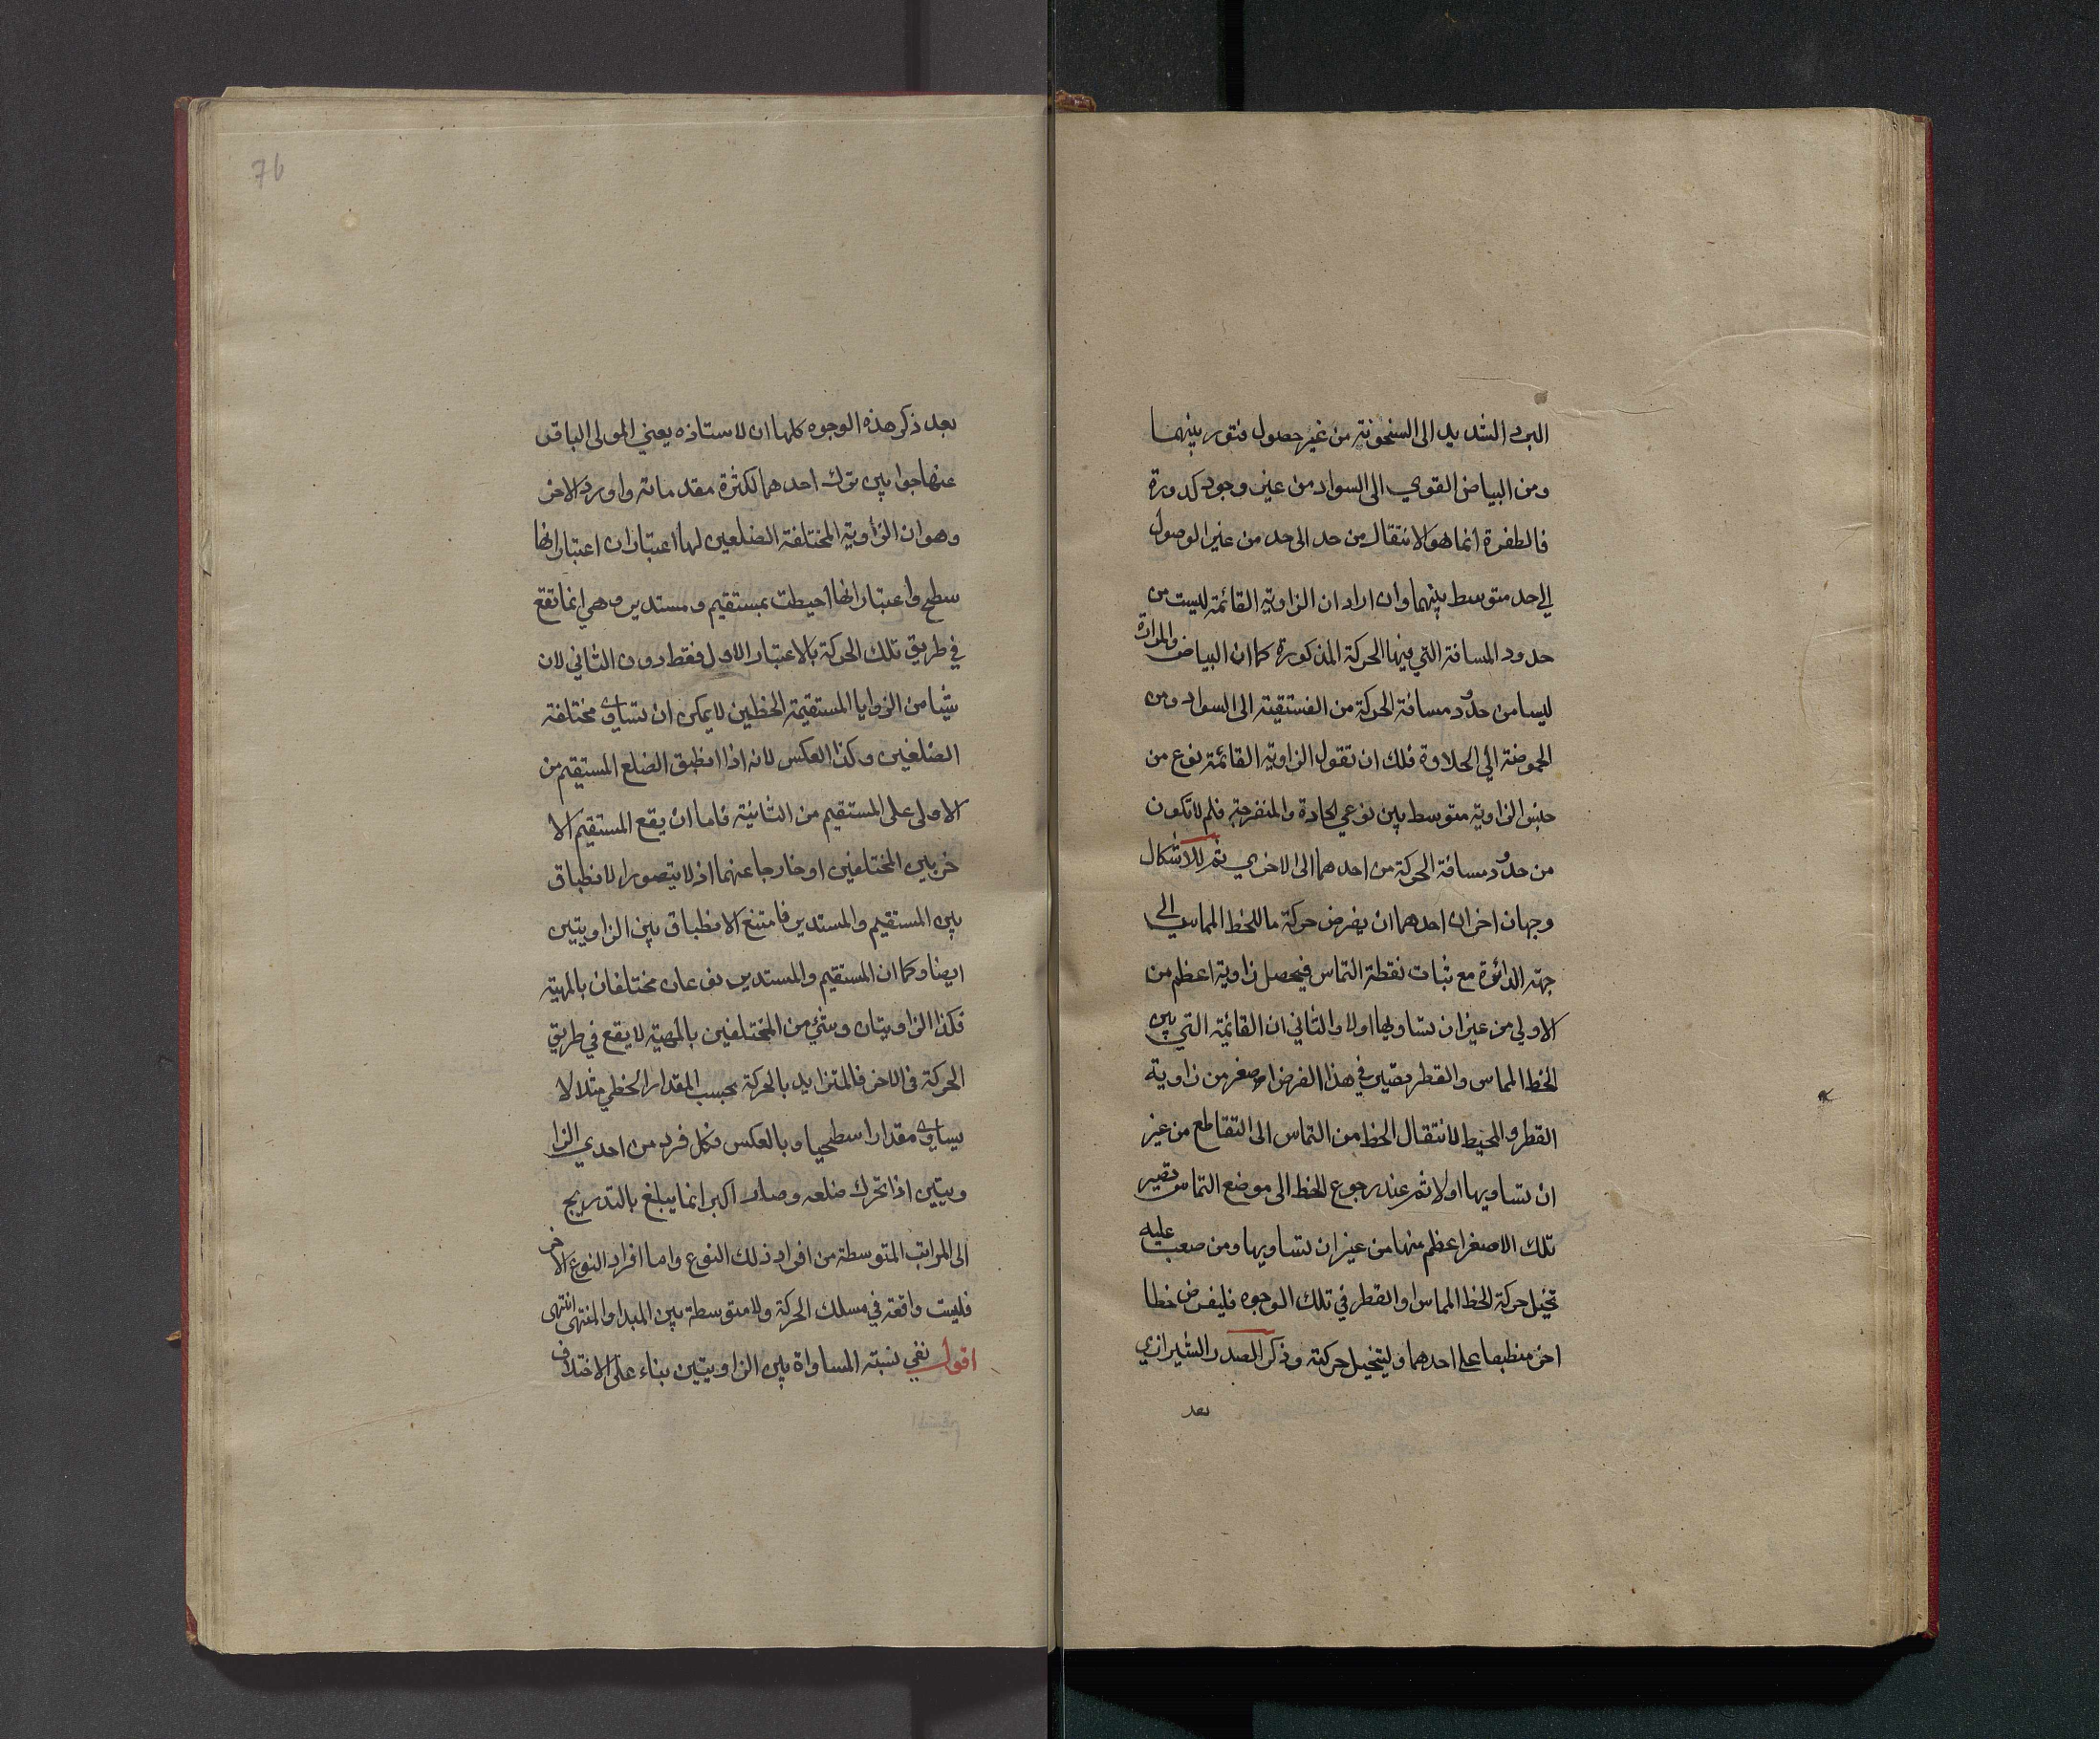 البرد الشديد الى السخونة من غير حصول فتور بينهما
ومن البياض القوي الى السواد من غير وجود كدورة
فالطفرة انما هو الانتقال من حد الى حد من غير الوصول
الى حد متوسط بينهما وان اراد ان الزاوية القائمة ليست من
حدود المسافة التي فيها الحركة المذكورة كما ان البياض والمرارة
ليسا من حدود مسافة الحركة من الفستقية الى السواد ومن
الحموضة الي الحلاوة فلك ان تقول الزاوية القائمة نوع من
جنس الزاوية متوسط بين نوعي الحادة والمنفرجة فلم لا تكون
من حدود مسافة الحركة من احدهما الى الاخري ثم للاشكال
وجهان اخران احدهما ان يفرض حركة ما للخط المماس الى
جهة الدائرة مع ثبات نقطة التماس فيحصل زاوية اعظم من
الاولي من غير ان تساويها اولا والثاني ان القائمة التي بين
الخط المماس والقطر يصير في هذا الفرض اصغر من زاوية
القطر والمحيط لانتقال الخط من التماس الى التقاطع من غير
ان تساويها اولا ثم عند رجوع الخط الى موضع التماس تصير
تلك الاصغر اعظم منها من غير ان تساويها ومن صعب عليه
تخيل حركة الخط المماس او القطر في تلك الوجوه فليفرض خطا
اخر منطبقا على احدهما وليتخيل حركته وذكر الصدر الشيرازي
بعد
76
بعد ذكر هذه الوجوه كلها ان لاستاذه يعني المولى الباقر
عنها جوابين ترك احدهما لكثرة مقدماته واورد الاخر
وهو ان الزاوية المختلفة الضلعين لها اعتباران اعتبار انها
سطح واعتبار انها احيطت بمستقيم ومستدير وهي انما تقع
في طريق تلك الحركة بالاعتبار الاول فقط دون الثاني لان
شيا من الزوايا المستقيمة الخطين لا يمكن ان تساوي مختلفة
الضلعين وكذا العكس لانه اذا انطبق الضلع المستقيم من
الاولى على المستقيم من الثانية فاما ان يقع المستقيم الا
خر بين المختلفين او خارجا عنهما اذ لا يتصور الانطباق
بين المستقيم والمستدير فامتنع الانطباق بين الزاويتين
ايضا وكما ان المستقيم والمستدير نوعان مختلفان بالمهية
فكذا الزاويتان وشئ من المختلفين بالمهية لا يقع في طريق
الحركة في الاخر فالمتزايد بالحركة بحسب المقدار الخطي مثلا لا
يساوي مقدارا سطحيا وبالعكس فكل فرد من احدي الزا
ويتين اذا تحرك ضلعه وصار اكبر انما يبلغ بالتدريج
الى المراتب المتوسطة من افراد ذلك النوع واما افراد النوع الاخر
فليست واقعة في مسلك الحركة ولا متوسطة بين المبدا والمنتهى انتهى
اقول نفي نسبة المساواة بين الزاويتين بناء على الاختلاف